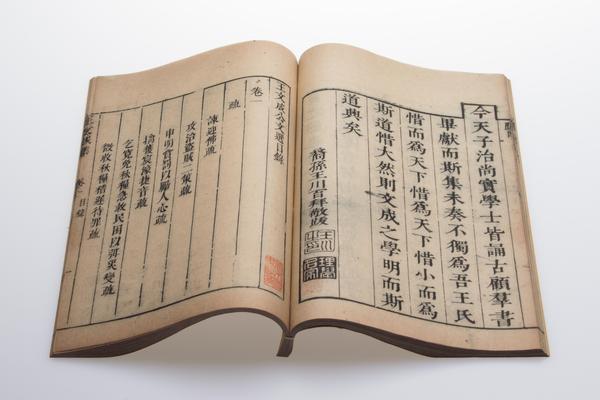 今天子治尚實學士皆誦古顧羣書
畢獻而斯集未奏不獨爲吾王氏
惜而爲天下惜爲天下惜小而爲
斯道惜大然則文成之學明而斯
道興矣
裔孫王川百拜敬跋
王文成公文選目錄
卷一
疏
諫迎佛疏
攻治盜賊二策疏
申明賞罰以厲人心疏
擒獲宸濠捷音疏
乞寬免秋糧急救民困以弭災變疏
徵收秋糧稽遲待罪疏
卷一目錄